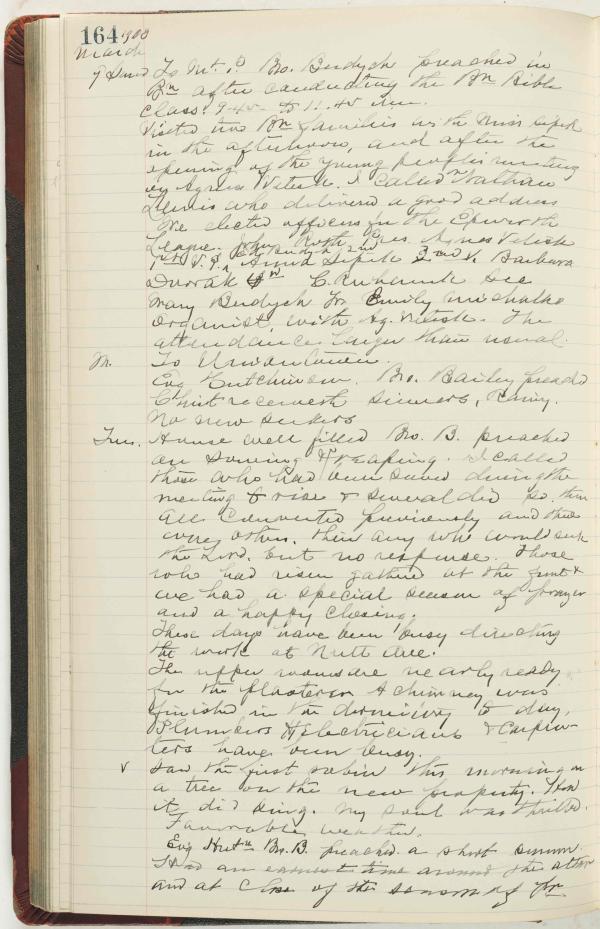 164 1900
March
To Mt. P. Bro. Budych preached in
Bn after conducting the Bn Bible
Class. 9-45 to 11.45 am.
Visited two Bn families in the afternoon, and after the
opening of the young people's meeting
by Agnes Vetisk. I called Nathan
Lewis who delivered a good address
We elected officers in the Epworth
League. John Roth Pres. Agnes Vetisk
1st V. P. 2nd Anna Sipek 3rd V. Barbara
Dvorak C. Sec
Mary Budych Tr Emily
Organist, with Ag. Vetisk. The
attendance larger than usual.
M. To Uniontown.
Evg Hutchinson. Bro. Bailey preached
Christ receiveth sinners, Rainy.
No new seekers
Tues. House well filled Bro. B. preached
on sowing & reaping. I called
those who had been saved during the
meeting to rise & several did so. then
all converted previously and these
were others. then any who would seek
the Lord, but no response. Those
who had risen gathered at the front &
we had a special season of prayer
and a happy closing.
These days have been busy directing
the work at Nutt Ave.
The upper rooms are nearly ready
for the plasterer A chimney was
finished in the dormitory to day,
Plumbers & electricians & carpen-
ters have been busy.
v Saw the first robin this morning on
a tree on the new property. How
it did sing. My soul was thrilled.
Favorable weather.
Evg Hutn Bro. B. preached a short sermon.
Had an earnest time around the altar
and at close of the season of